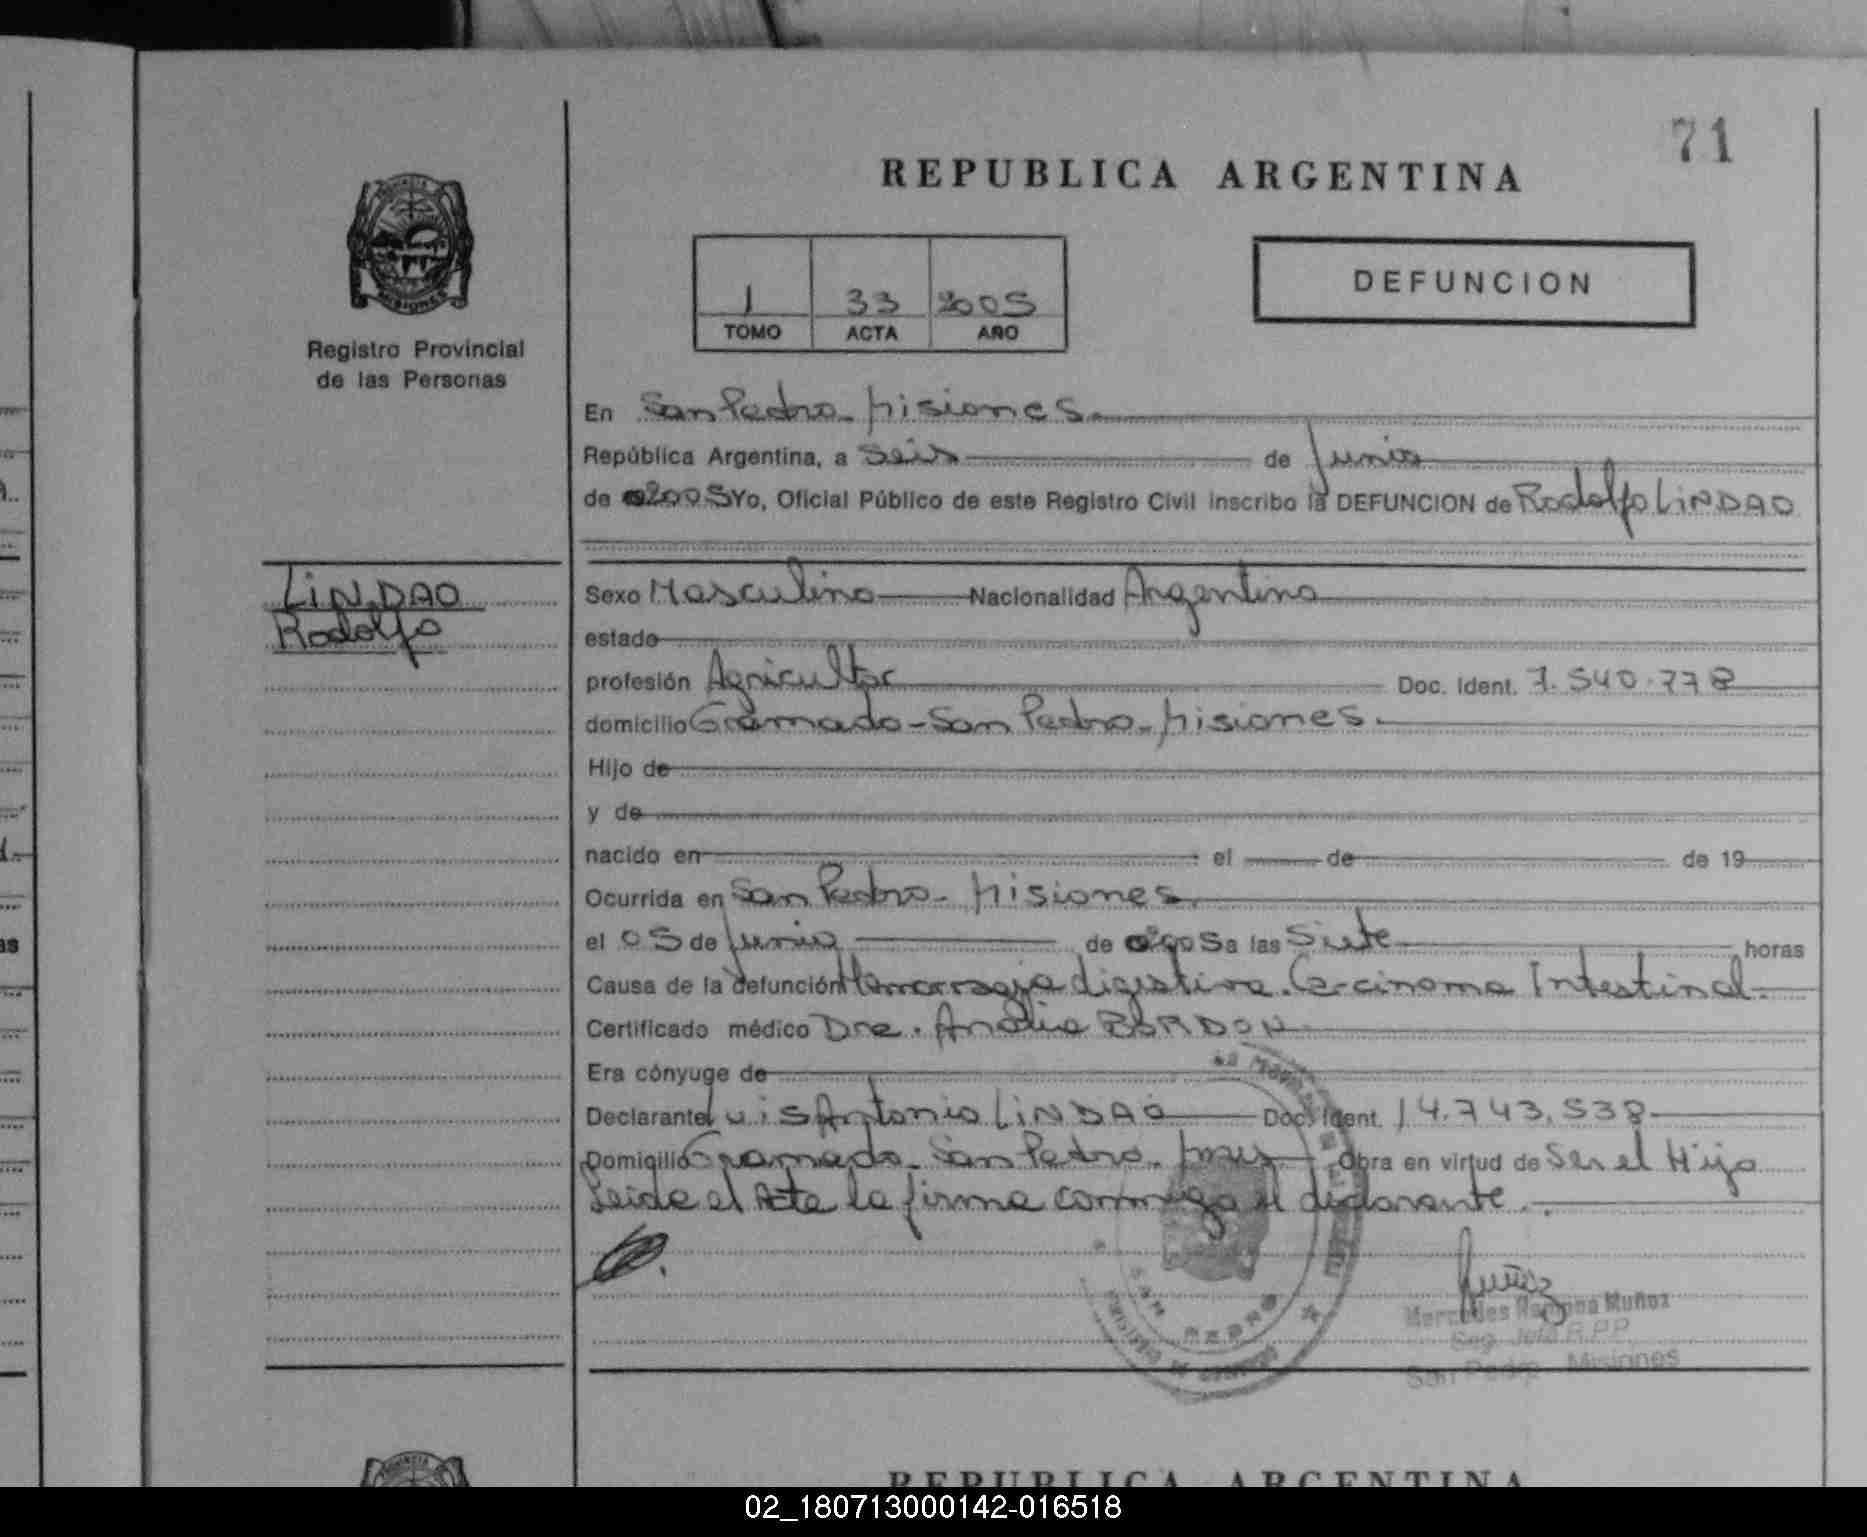 71
REPUBLICA ARGENTINA
1 33 2005
TOMO ACTA AÑO
DEFUNCION
PROVINCIA DE
MISIONES
Registro Provincial
de las Personas
En San Pedro - Misiones.
República Argentina, a Seis de Junio
de 2005 Yo, Oficial Público de este Registro Civil inscribo la DEFUNCION de Rodolfo LiNDAO
LiNDAO
Rodolfo
Sexo Masculino Nacionalidad Argentina
estado
profesión Agricultor Doc. Ident. 7.540.778
domicilio Gramado - San Pedro - Misiones.
Hijo de
y de
nacido en el de de 19
Ocurrida en San Pedro - Misiones.
el 05 de Junio de 2005 a las Siete horas
Causa de la defunción Hemorragia digestiva. Carcinoma Intestinal.
Certificado médico Dra. Analia BORDON
Era cónyuge de
Declarante Luis Antonio LiNDAO Doc. Ident. 14.743.538
Domicilio Gramado - San Pedro - Mnes Obra en virtud de Ser el Hijo
Leida el Acta la firma conmigo el declarante.
SAN PEDRO
Muñoz
Mercedes Ramona Muñoz
Seg. Jefa R.P.P.
San Pedro - Misiones
REPUBLICA ARGENTINA
02_180713000142-016518